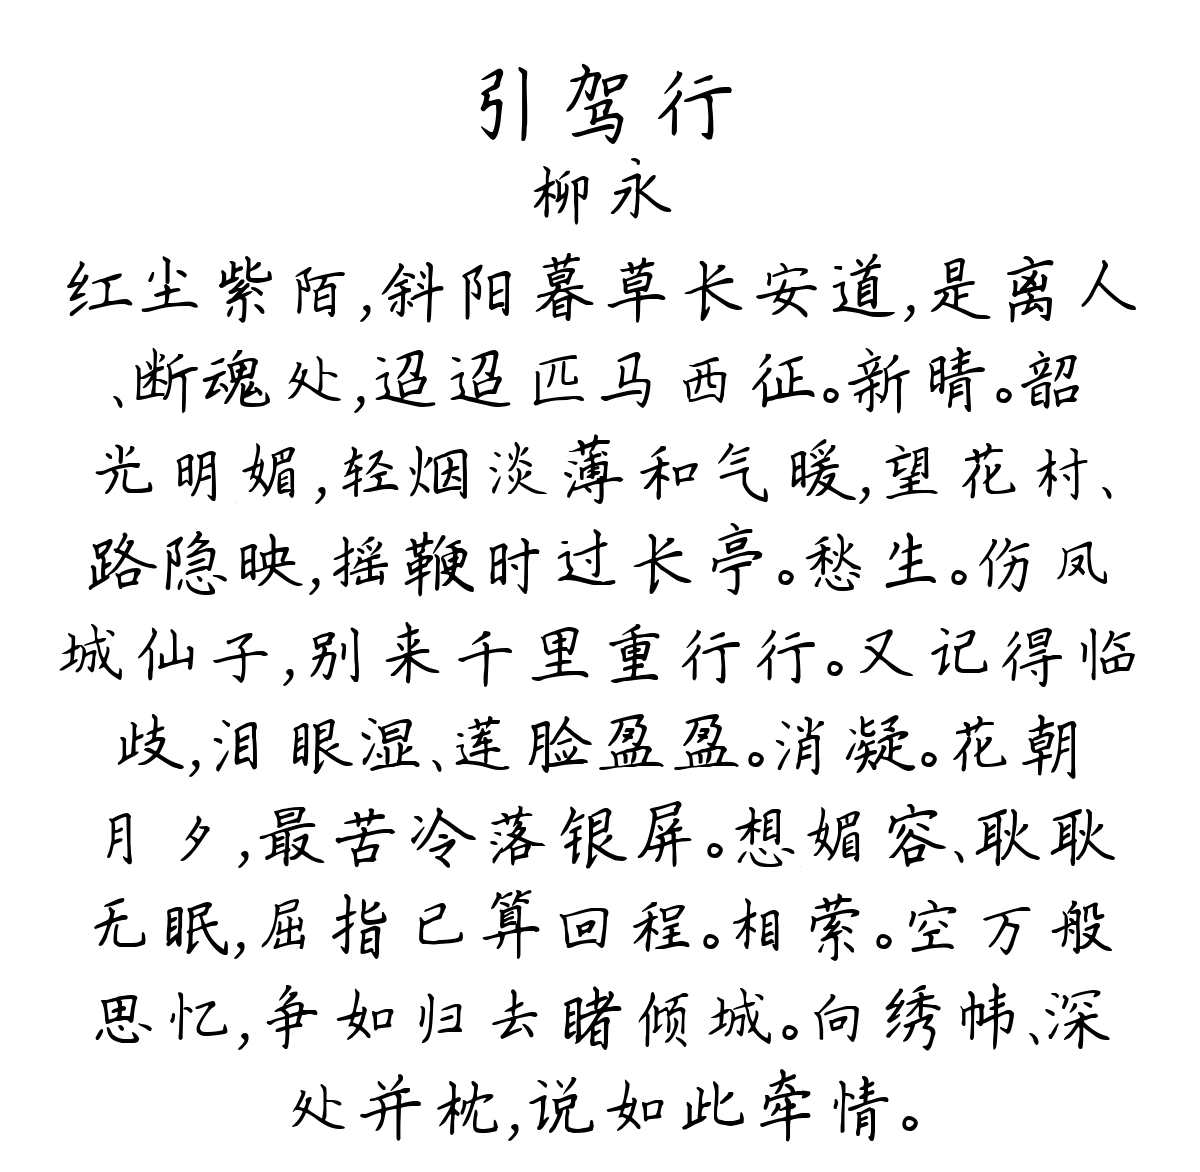 引驾行
柳永
红尘紫陌,斜阳暮草长安道,是离人
、断魂处,迢迢匹马西征。新晴。韶
光明媚,轻烟淡薄和气暖,望花村、
路隐映,摇鞭时过长亭。愁生。伤凤
城仙子,别来千里重行行。又记得临
歧,泪眼湿、莲脸盈盈。消凝。花朝
月夕,最苦冷落银屏。想媚容、耿耿
无眠,屈指已算回程。相萦。空万般
思忆,争如归去睹倾城。向绣帏、深
处并枕,说如此牵情。